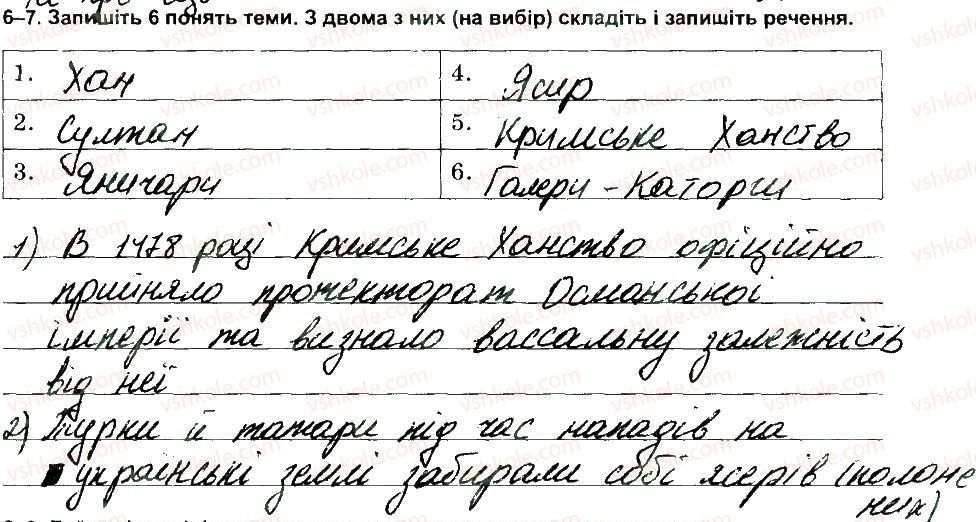 6–7. Запишіть 6 понять теми. З двома з них (на вибір) складіть і запишіть речення.
1. Хан
4. Ясир
2. Султан
5. Кримське Ханство
3. Яничари
6. Галери - Каторги
1) В 1478 році Кримське Ханство офіційно
прийняло протекторат Османської
імперії та визнало вассальну залежність
від неї
2) Турки й татари під час нападів на
українські землі забирали собі ясерів (полоне
них)